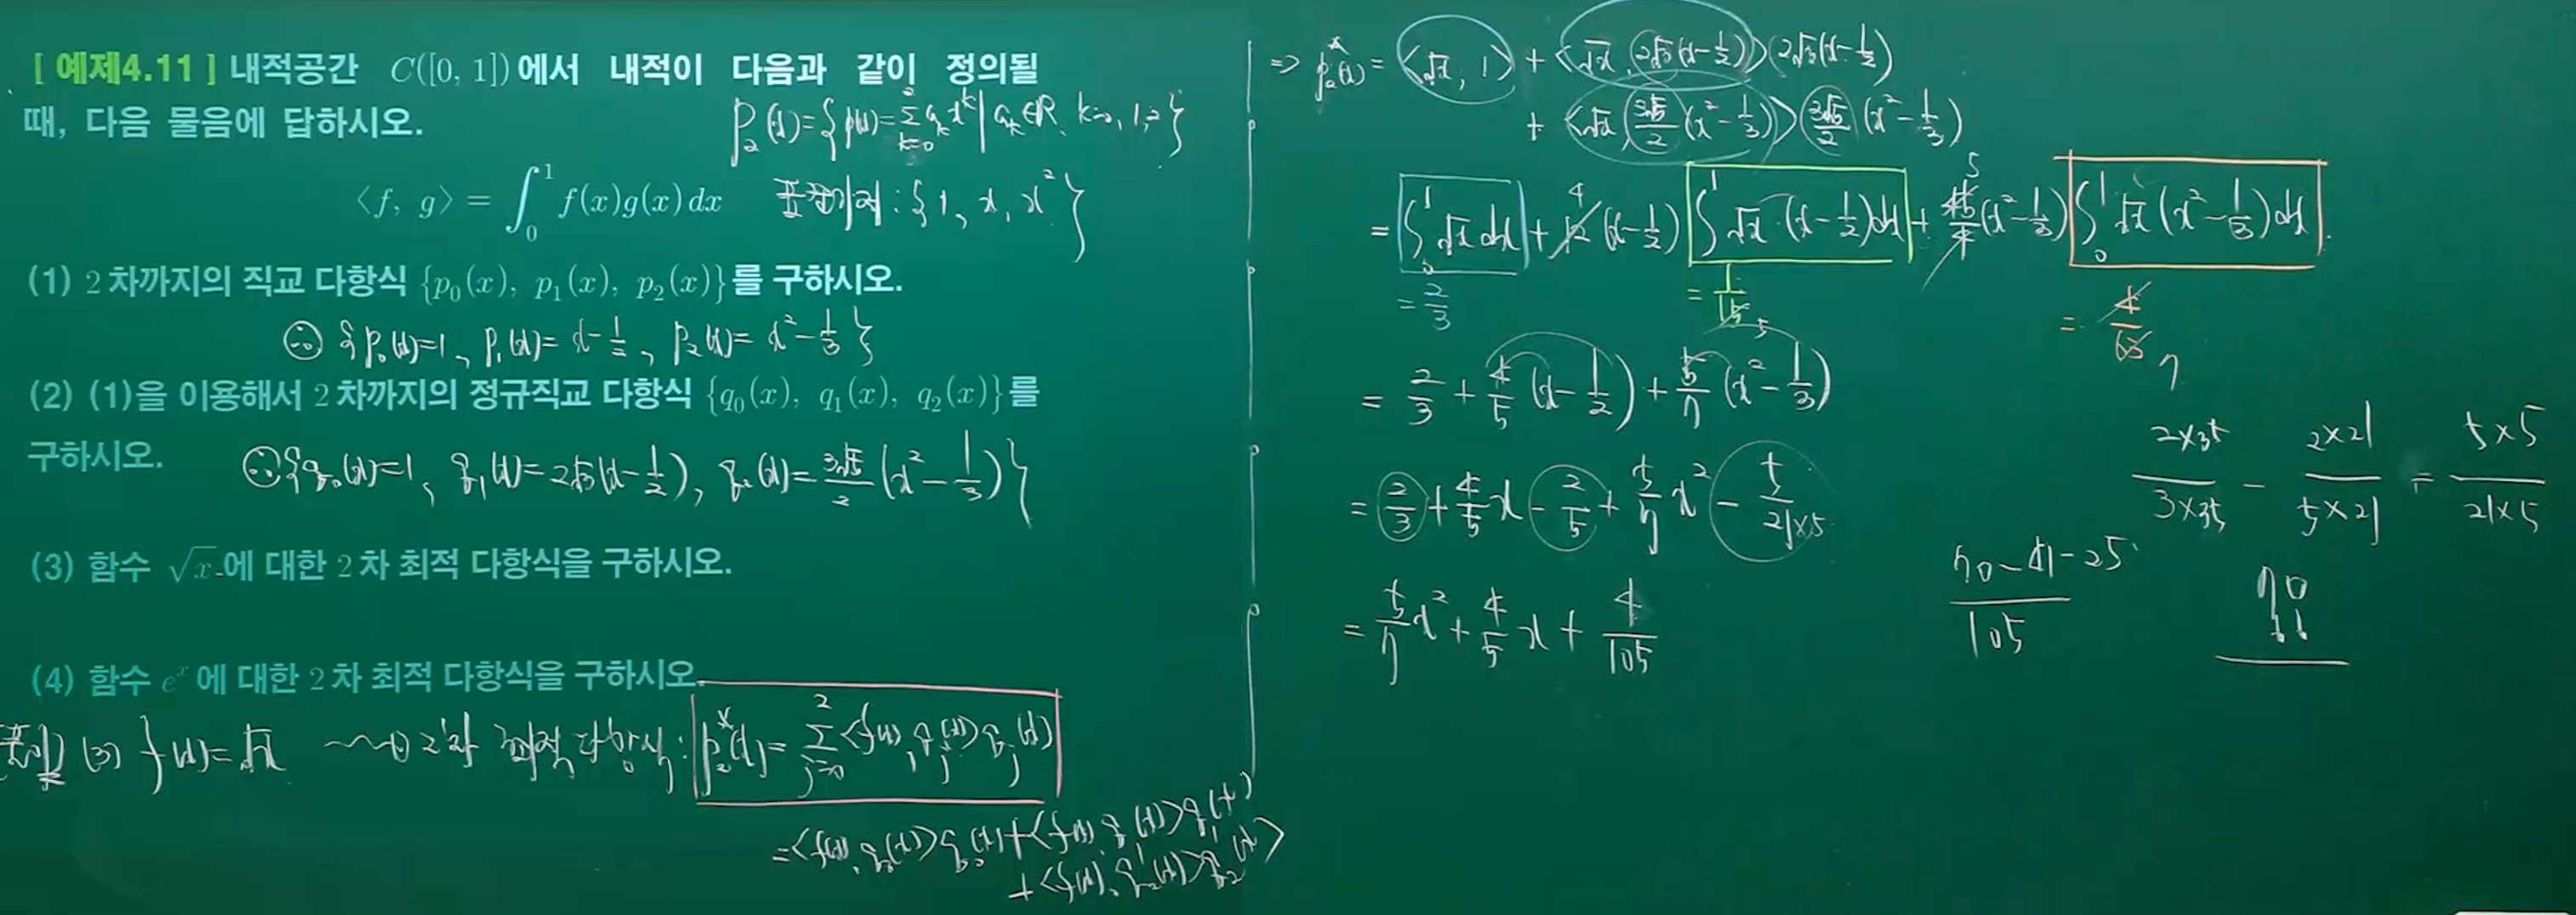 [ 예제4.11 ] 내적공간 C([0, 1])에서 내적이 다음과 같이 정의될
때, 다음 물음에 답하시오.
P₂(x)={p(x)=Σ_{k=0}^{2} a_k x^k | a_k∈R, k=0, 1, 2}
⟨f, g⟩ = ∫₀¹ f(x)g(x) dx
표준기저 : {1, x, x²}
(1) 2차까지의 직교 다항식 {p₀(x), p₁(x), p₂(x)}를 구하시오.
∴ {p₀(x)=1, p₁(x)= x-1/2, p₂(x)= x²-1/3}
(2) (1)을 이용해서 2차까지의 정규직교 다항식 {q₀(x), q₁(x), q₂(x)}를
구하시오.
∴ {q₀(x)=1, q₁(x)=2√3(x-1/2), q₂(x)=3√5/2 (x²-1/3)}
(3) 함수 √x 에 대한 2차 최적 다항식을 구하시오.
(4) 함수 eˣ에 대한 2차 최적 다항식을 구하시오.
(3) f(x)=√x ⟿ 2차 최적 다항식 : p₂*(x)= Σ_{j=0}^{2} <f(x), q_j(x)> q_j(x)
= <f(x), q₀(x)>q₀(x)+<f(x), q₁(x)>q₁(x)
+ <f(x), q₂(x)>q₂(x)
⇒ p₂*(x)= <√x, 1> + <√x, 2√3(x-1/2)>2√3(x-1/2)
+ <√x, 3√5/2 (x²-1/3)> 3√5/2 (x²-1/3)
= ∫₀¹ √x dx + 12 (x-1/2) ∫₀¹ √x·(x-1/2)dx + 45/4 (x²-1/3) ∫₀¹ √x (x²-1/3)dx
4 5
= 2/3 = 1/15 = 4/63
5 7
= 2/3 + 4/5 (x-1/2) + 5/7 (x²-1/3)
= 2/3 + 4/5 x - 2/5 + 5/7 x² - 5/21×5
= 5/7 x² + 4/5 x + 4/105
2×35/3×35 - 2×21/5×21 = 5×5/21×5
70-41-25/105
70